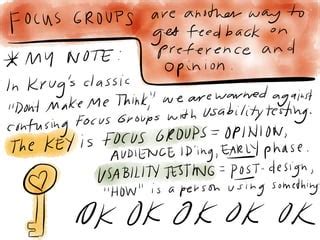 FOCUS GROUPS are another way to
get feedback on
preference and
opinion.
* MY NOTE:
In Krug's classic
"Dont Make Me Think," we are warned against
confusing Focus Groups with Usability testing.
The KEY is FOCUS GROUPS = OPINION,
AUDIENCE ID'ing, EARLY phase.
USABILITY TESTING = POST-design,
"HOW" is a person using something
OK OK OK OK OK